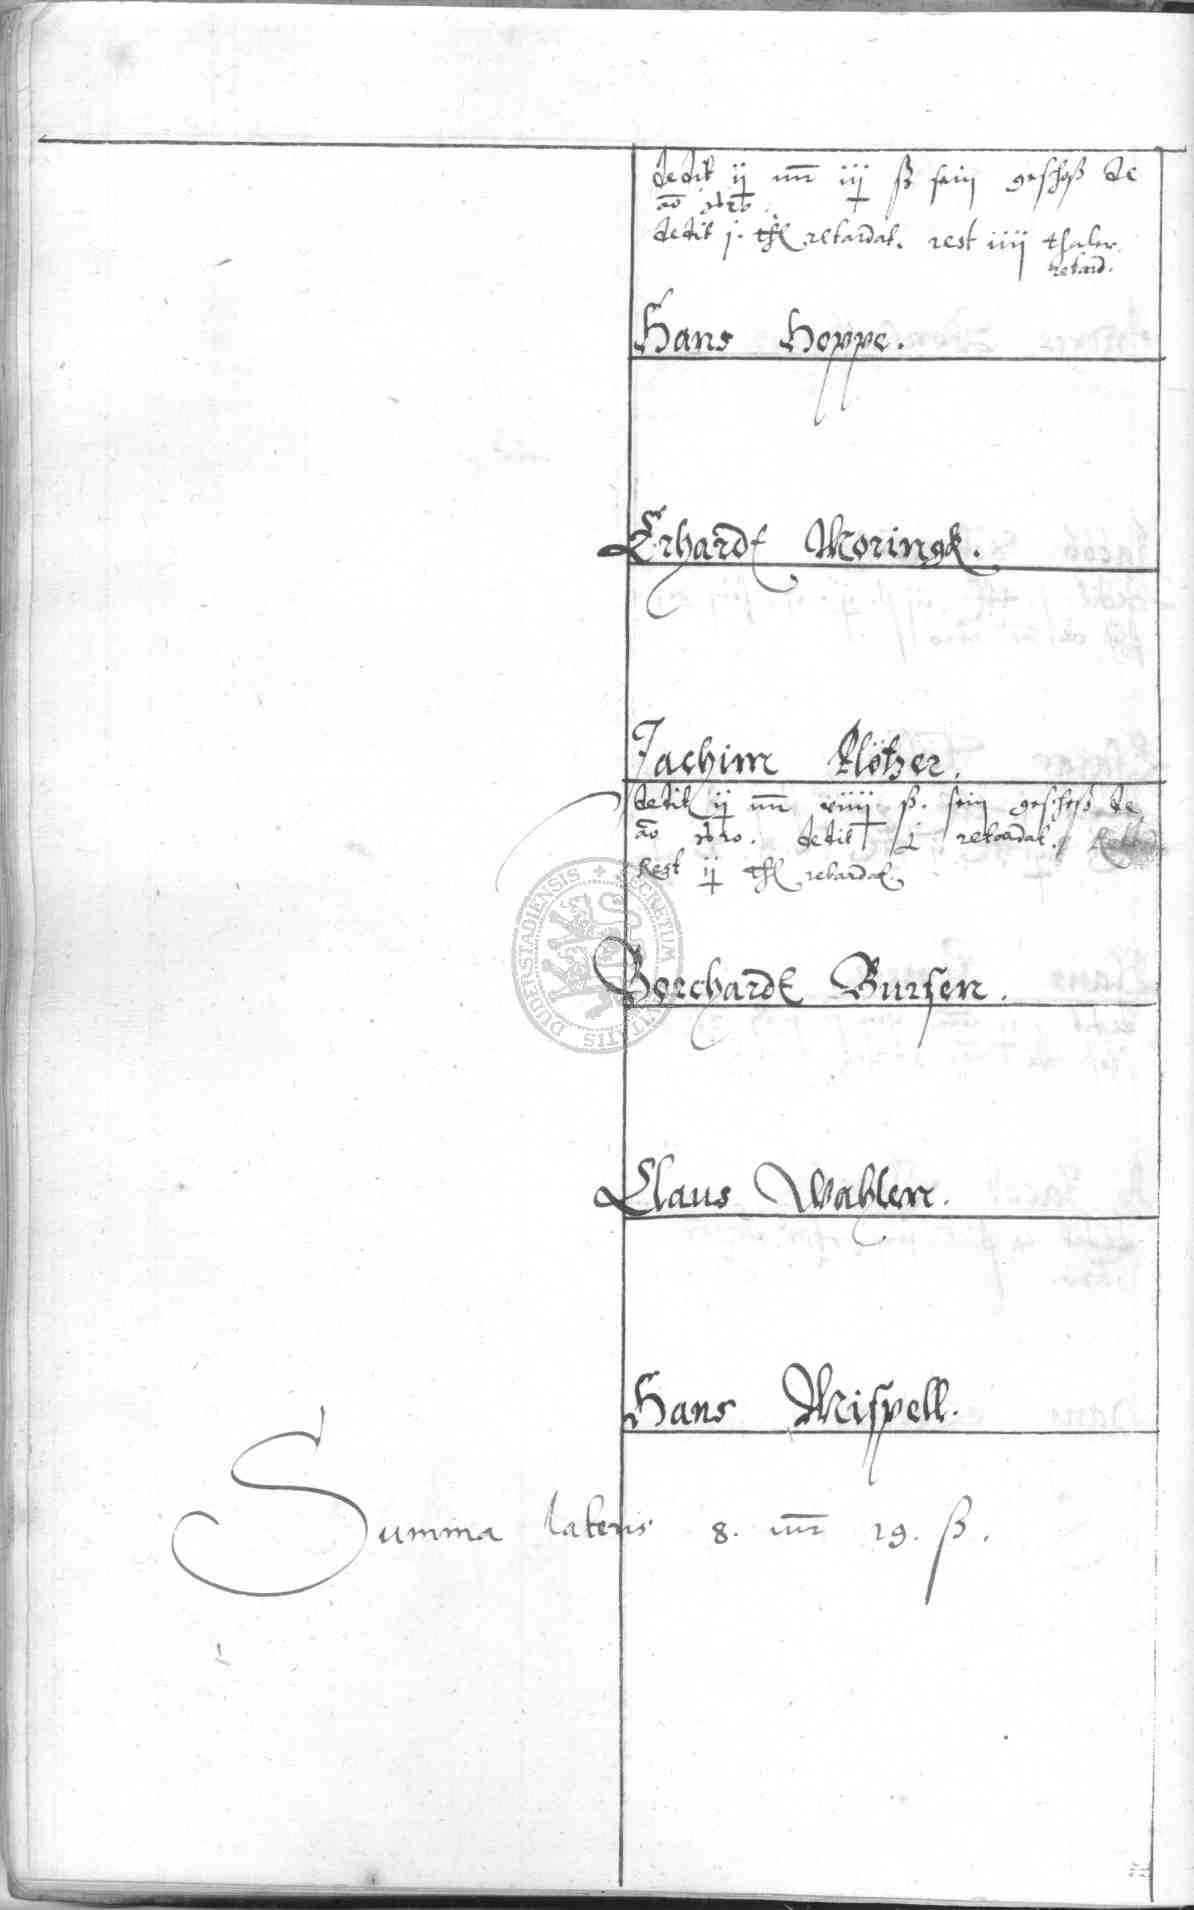 dedit ij mr iij ß sein geschoß de
ao
dedit j. thl retardat. rest iiij thaler
retard.
Hans Hoppe.
Erhardt Moringk.
Jachim Klötzer.
dedit ij mr xiiij ß. sein geschoß de
ao dedit retardat.
Rest ij thl retardat.
DUDERSTADIENSIS SECRETUM CIVITATIS
Borchardt Bursen.
Claus Wahlen.
Hans Mispell.
Summa lateris 8. mr 19. ß.